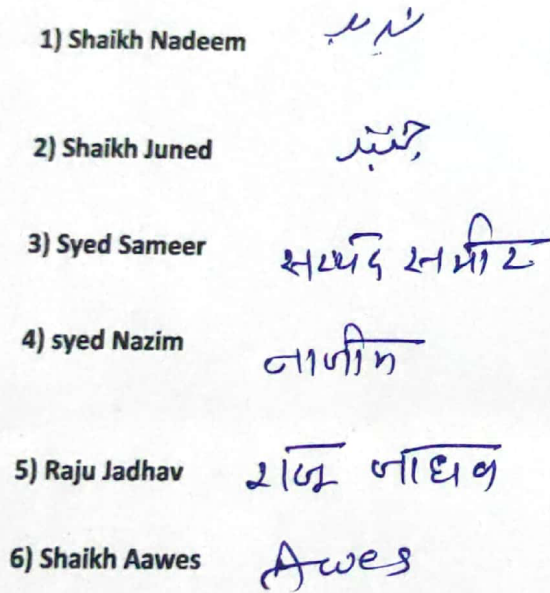 1) Shaikh Nadeem
2) Shaikh Juned جنید
3) Syed Sameer सय्यद समीर
4) syed Nazim नाजीम
5) Raju Jadhav राजू जाधव
6) Shaikh Aawes Awes